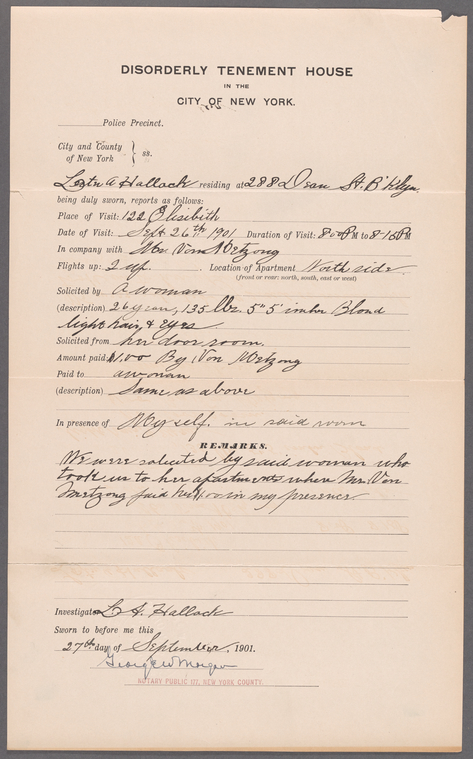 DISORDERLY TENEMENT HOUSE
IN THE
CITY OF NEW YORK.
Police Precinct.
City and County
of New York } ss.
A Hallock residing at 288 Dean St. B'klyn
being duly sworn, reports as follows:
Place of Visit: 122 Elisibith
Date of Visit: Sept 26th 1901 Duration of Visit: 8.00 PM to 8-15 PM
In company with Mr. Von Metzong
Flights up: 2 up. Location of Apartment North side
(front or rear: north, south, east or west)
Solicited by A woman
(description) 26 years, 135 lbs. 5" 5' inches Blond
light hair, & Eyes
Solicited from her door room.
Amount paid: $1.00 By Von Metzong
Paid to a woman
(description) Same as above
In presence of Myself. in said room
REMARKS.
We were solicited by said woman who
took us to her apartments where Mr. Von
Metzong paid her in my presence
Investigator L A. Hallock
Sworn to before me this
27th day of September, 1901.
George W Morgan
NOTARY PUBLIC 117, NEW YORK COUNTY.